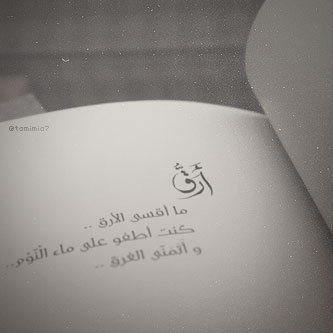 @tamimia7
أَرَقٌ
ما أقسى الأرق ..
كنت أطفو على ماء النَّوْم..
و أتمنّى الغرق ..